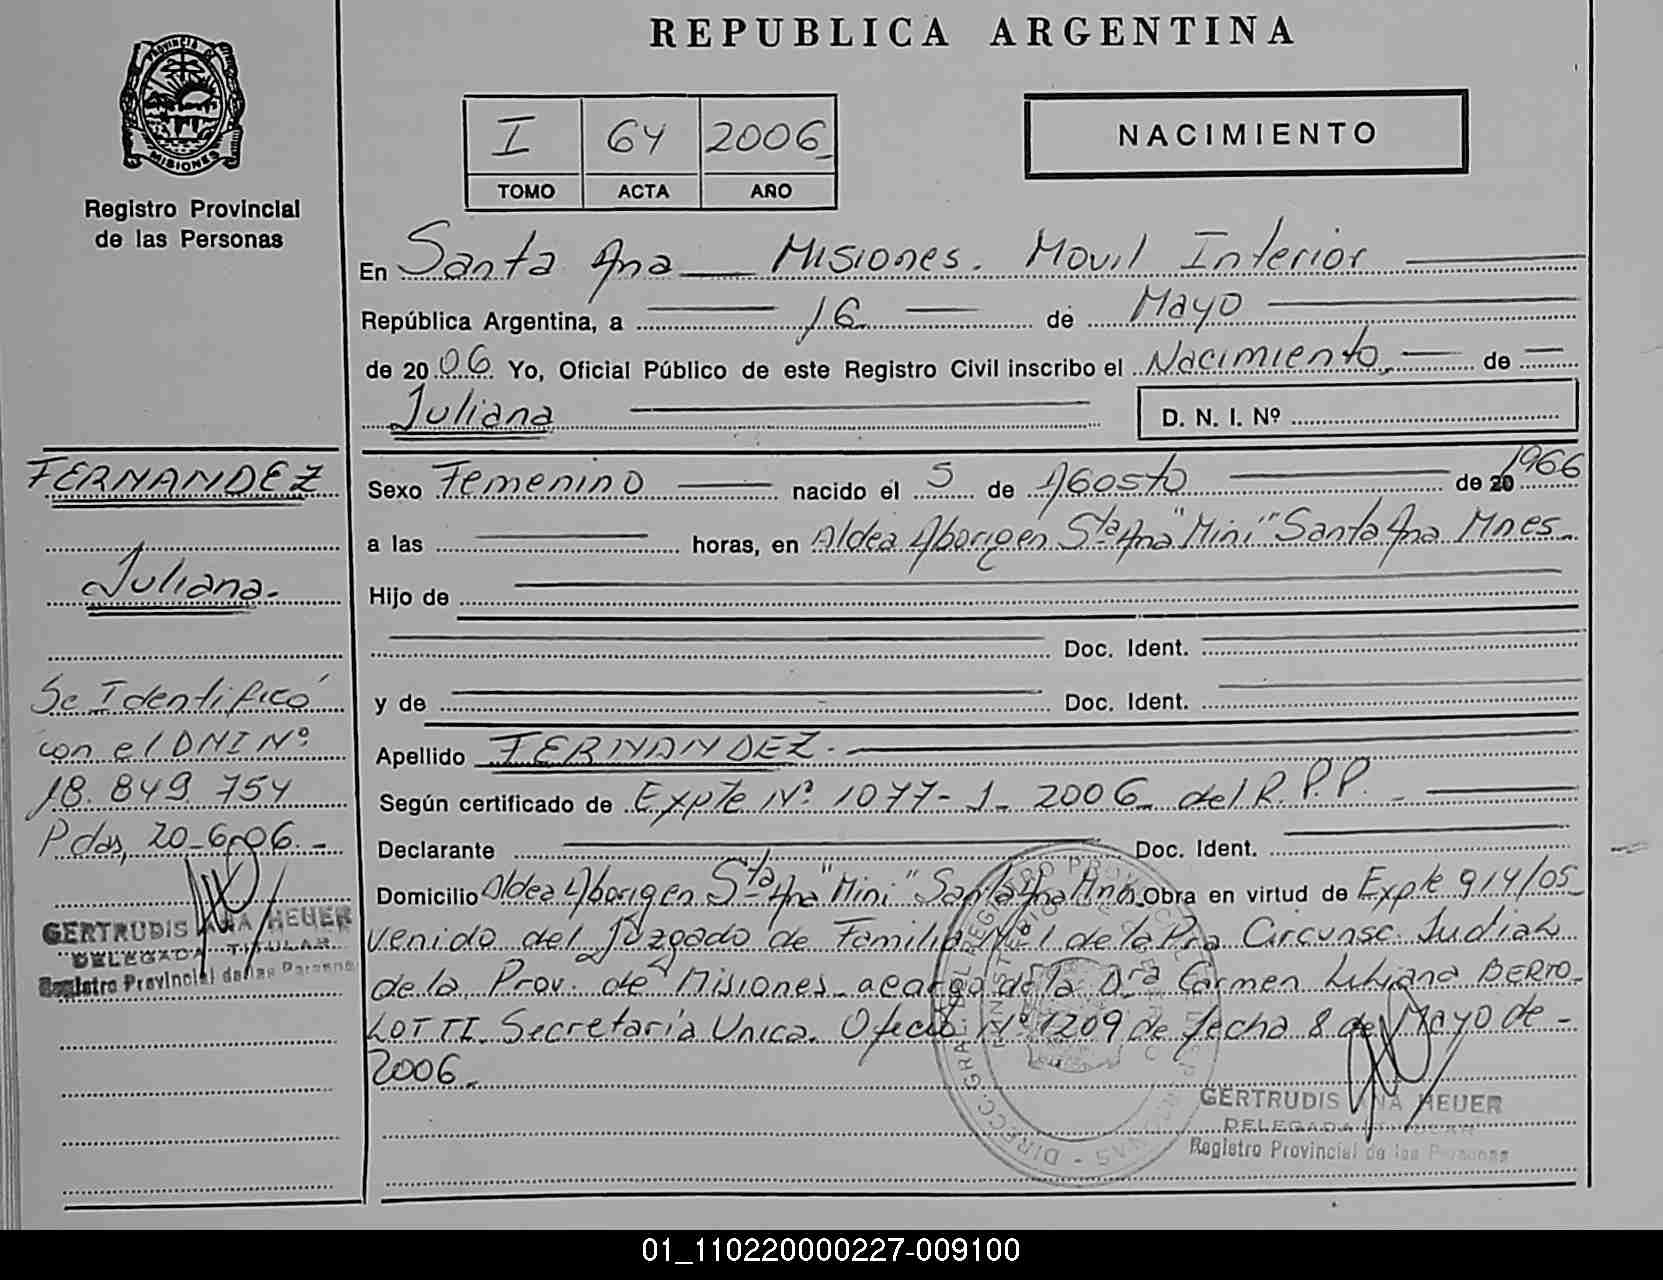 REPUBLICA ARGENTINA
PROVINCIA DE
MISIONES
Registro Provincial
de las Personas
I 64 2006
TOMO ACTA AÑO
NACIMIENTO
En Santa Ana Misiones. Movil Interior
República Argentina, a 16 de Mayo
de 2006 Yo, Oficial Público de este Registro Civil inscribo el Nacimiento de
Juliana D. N. I. Nº
FERNANDEZ
Juliana.
Se Identificó
con el DNI Nº
18.849.754
Pdas, 20-6-06.-
GERTRUDIS ANA HEUER
DELEGADA TITULAR
Registro Provincial de las Personas
Sexo Femenino nacido el 5 de Agosto de 20 1966
a las horas, en Aldea Aborigen Sta Ana "Mini" Santa Ana Mnes.
Hijo de
Doc. Ident.
y de Doc. Ident.
Apellido FERNANDEZ.
Según certificado de Expte Nº 1077-J-2006 del R.P.P.
Declarante Doc. Ident.
Domicilio Aldea Aborigen Sta Ana "Mini" Santa Ana Mnes Obra en virtud de Expte 914/05
venido del Juzgado de Familia Nº 1 de la Pra Circunsc. Judial
de la Prov. de Misiones a cargo de la Dra Carmen Liliana BERTO-
LOTTI. Secretaria Unica. Oficio Nº 1209 de fecha 8 de Mayo de -
2006.
GERTRUDIS ANA HEUER
DELEGADA TITULAR
Registro Provincial de las Personas
01_110220000227-009100